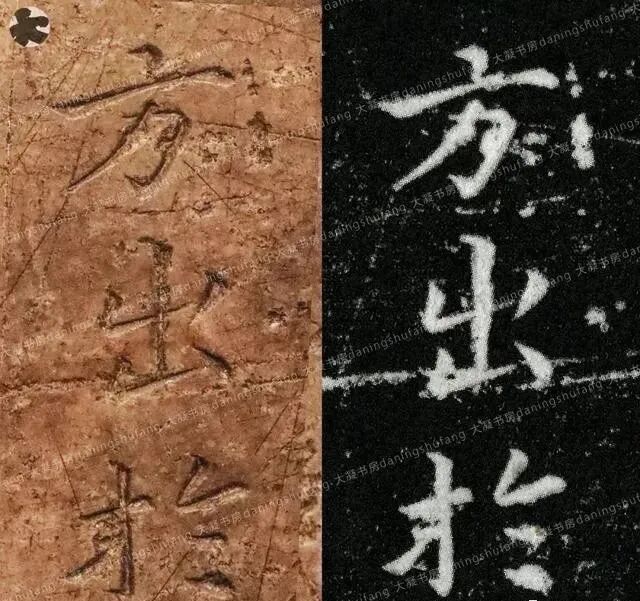 方出於
方出於
大凝书房daningshufang